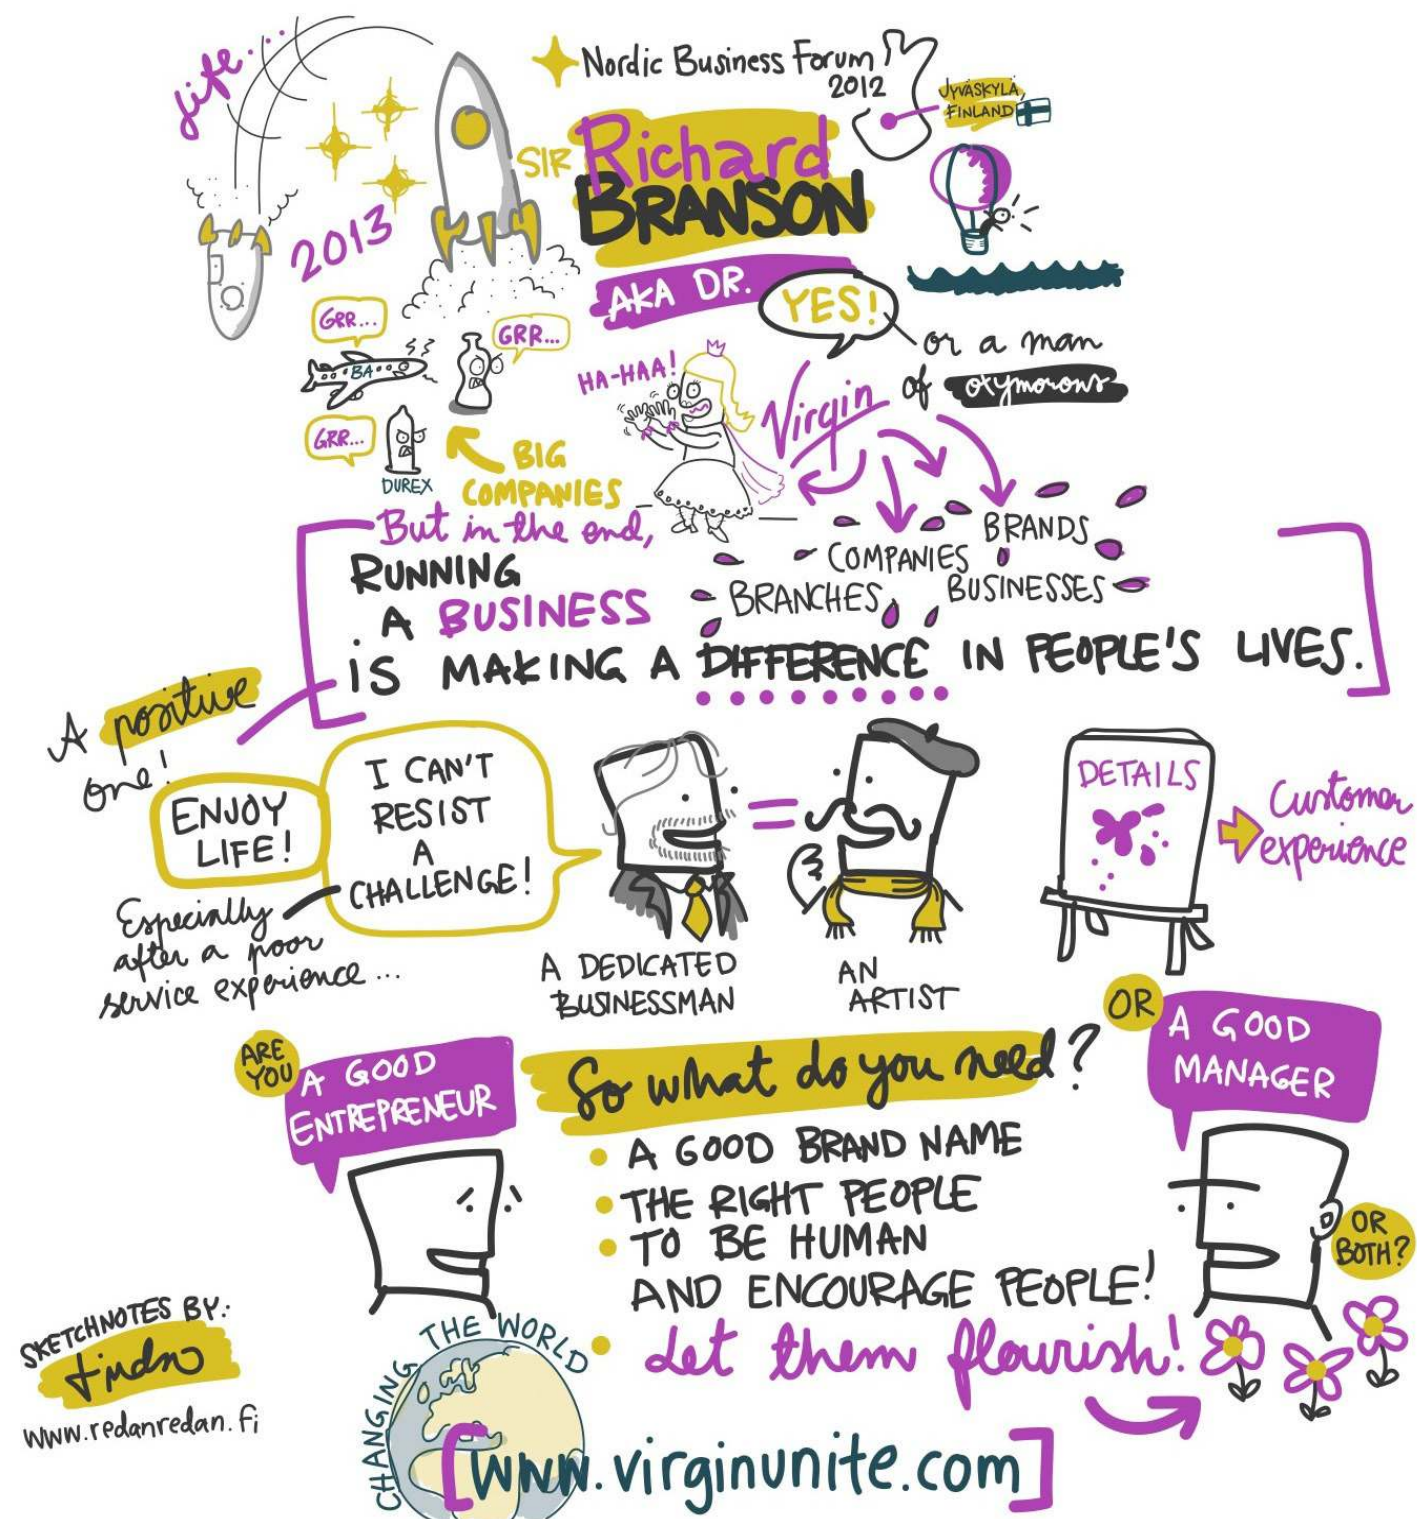 Life....
Nordic Business Forum
2012
JYVÄSKYLÄ,
FINLAND
SIR Richard
BRANSON
2013
AKA DR. YES!
or a man
of oxymorons
GRR...
GRR...
BA
GRR...
DUREX
BIG
COMPANIES
HA-HAA!
Virgin
BRANDS
COMPANIES
BUSINESSES
BRANCHES
But in the end,
RUNNING
A BUSINESS
IS MAKING A DIFFERENCE IN PEOPLE'S LIVES.
A positive
one!
ENJOY
LIFE!
I CAN'T
RESIST
A
CHALLENGE!
Especially
after a poor
service experience...
A DEDICATED
BUSINESSMAN
=
AN
ARTIST
DETAILS
Customer
experience
ARE
YOU
A GOOD
ENTREPRENEUR
OR
A GOOD
MANAGER
OR
BOTH?
So what do you need?
• A GOOD BRAND NAME
• THE RIGHT PEOPLE
• TO BE HUMAN
AND ENCOURAGE PEOPLE!
• Let them flourish!
CHANGING THE WORLD
[www.virginunite.com]
SKETCHNOTES BY:
www.redanredan.fi